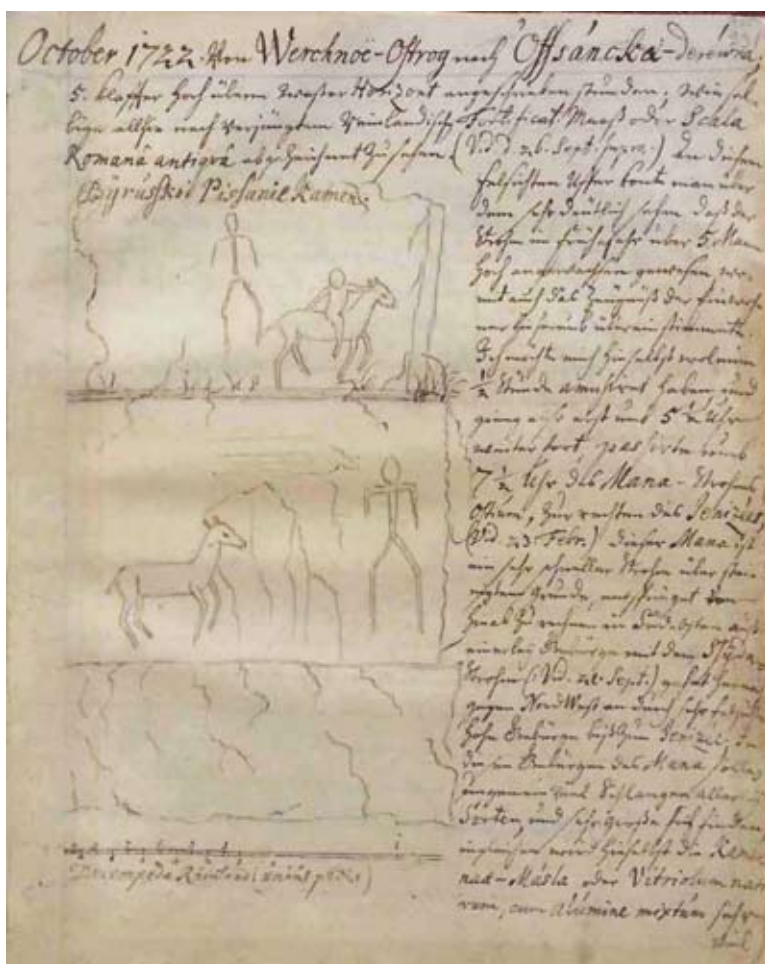 October 1722. Von Werchnoe-Ostrog nach Offsáncka-derewna,
5. klaffter hoch überm Wasser Horizont angeschrieben stunden; wie sel-
bige allhie nach verjüngtem Rheinländisch Fortificat: Maaß oder Scala
Romana antiqua abgezeichnet zu sehen. (Vid. d. 26. Sept. supra.) An diesem
Pisánie Kamen
felsichten Uffer konte man über
dem sehr deutlich sehen daß der
Strohm im frühjahr über 5. Mann
hoch angewachsen gewesen, wo-
mit auch das Zeugniß der
übereinstimmete.
Ich mochte mich hieselbst wol
½ Stunde haben, und
gieng also erst umb 5 ½ Uhr
weiter fort, passirte umb
7 ½ Uhr des Mana-Strohms
Ostium, zur rechten des Jeniseès,
(Vid. 23. Febr.) dieser Mana ist
ein sehr schneller Strohm über stei-
nigtem Grunde, entspringet
zu rechnen in Süd-Osten auß
einerley Gebürge mit dem
Strohm (Vid. Sept.) gehet
gegen NordWest an durch sehr
hohe Gebürgen biß zum Jenizei, In
diesen Gebürgen des Mana sollen
ungemein viel Schlangen aller
Sorten, und sehr große sich finden,
ingleichen wird hieselbst die
Másla oder Vitriolum nati-
vum, cum alumine mixtum sehr
viel